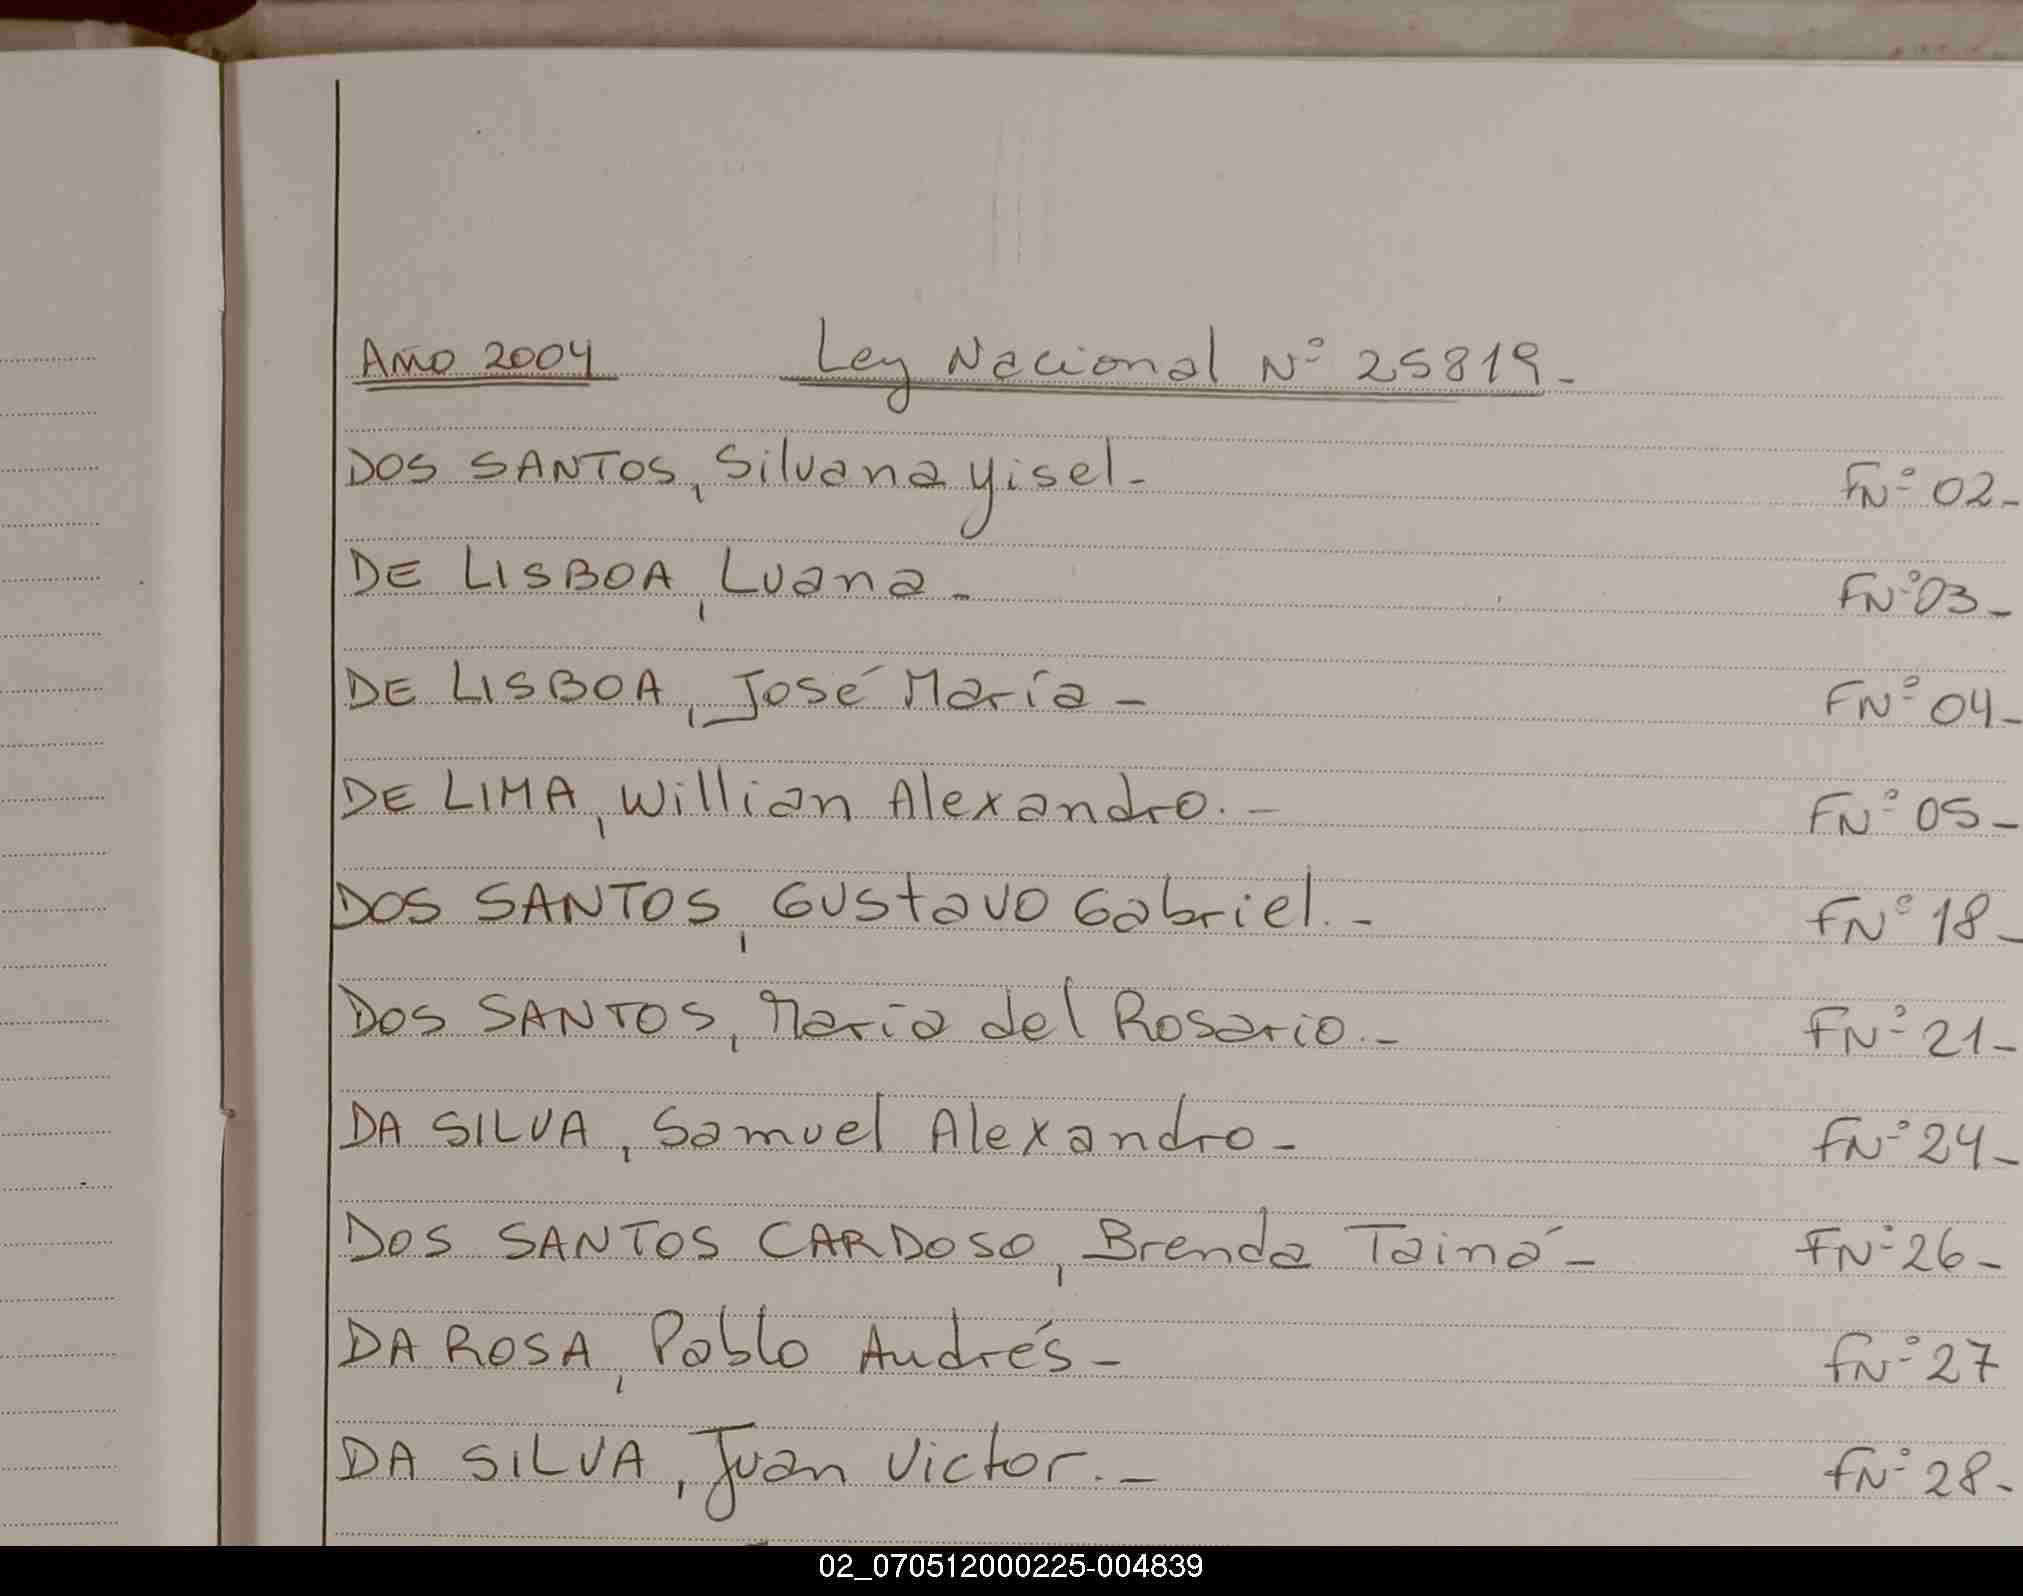 Año 2004 Ley Nacional Nº 25819-
DOS SANTOS, Silvana Yisel- FNº 02-
DE LISBOA, Luana- FNº 03-
DE LISBOA, José María- FNº 04-
DE LIMA, Willian Alexandro.- FNº 05-
DOS SANTOS, Gustavo Gabriel.- FNº 18-
DOS SANTOS, María del Rosario.- FNº 21-
DA SILVA, Samuel Alexandro- FNº 24-
DOS SANTOS CARDOSO, Brenda Tainá- FNº 26-
DA ROSA, Pablo Andrés- FNº 27
DA SILVA, Juan Victor.- FNº 28-
02_070512000225-004839